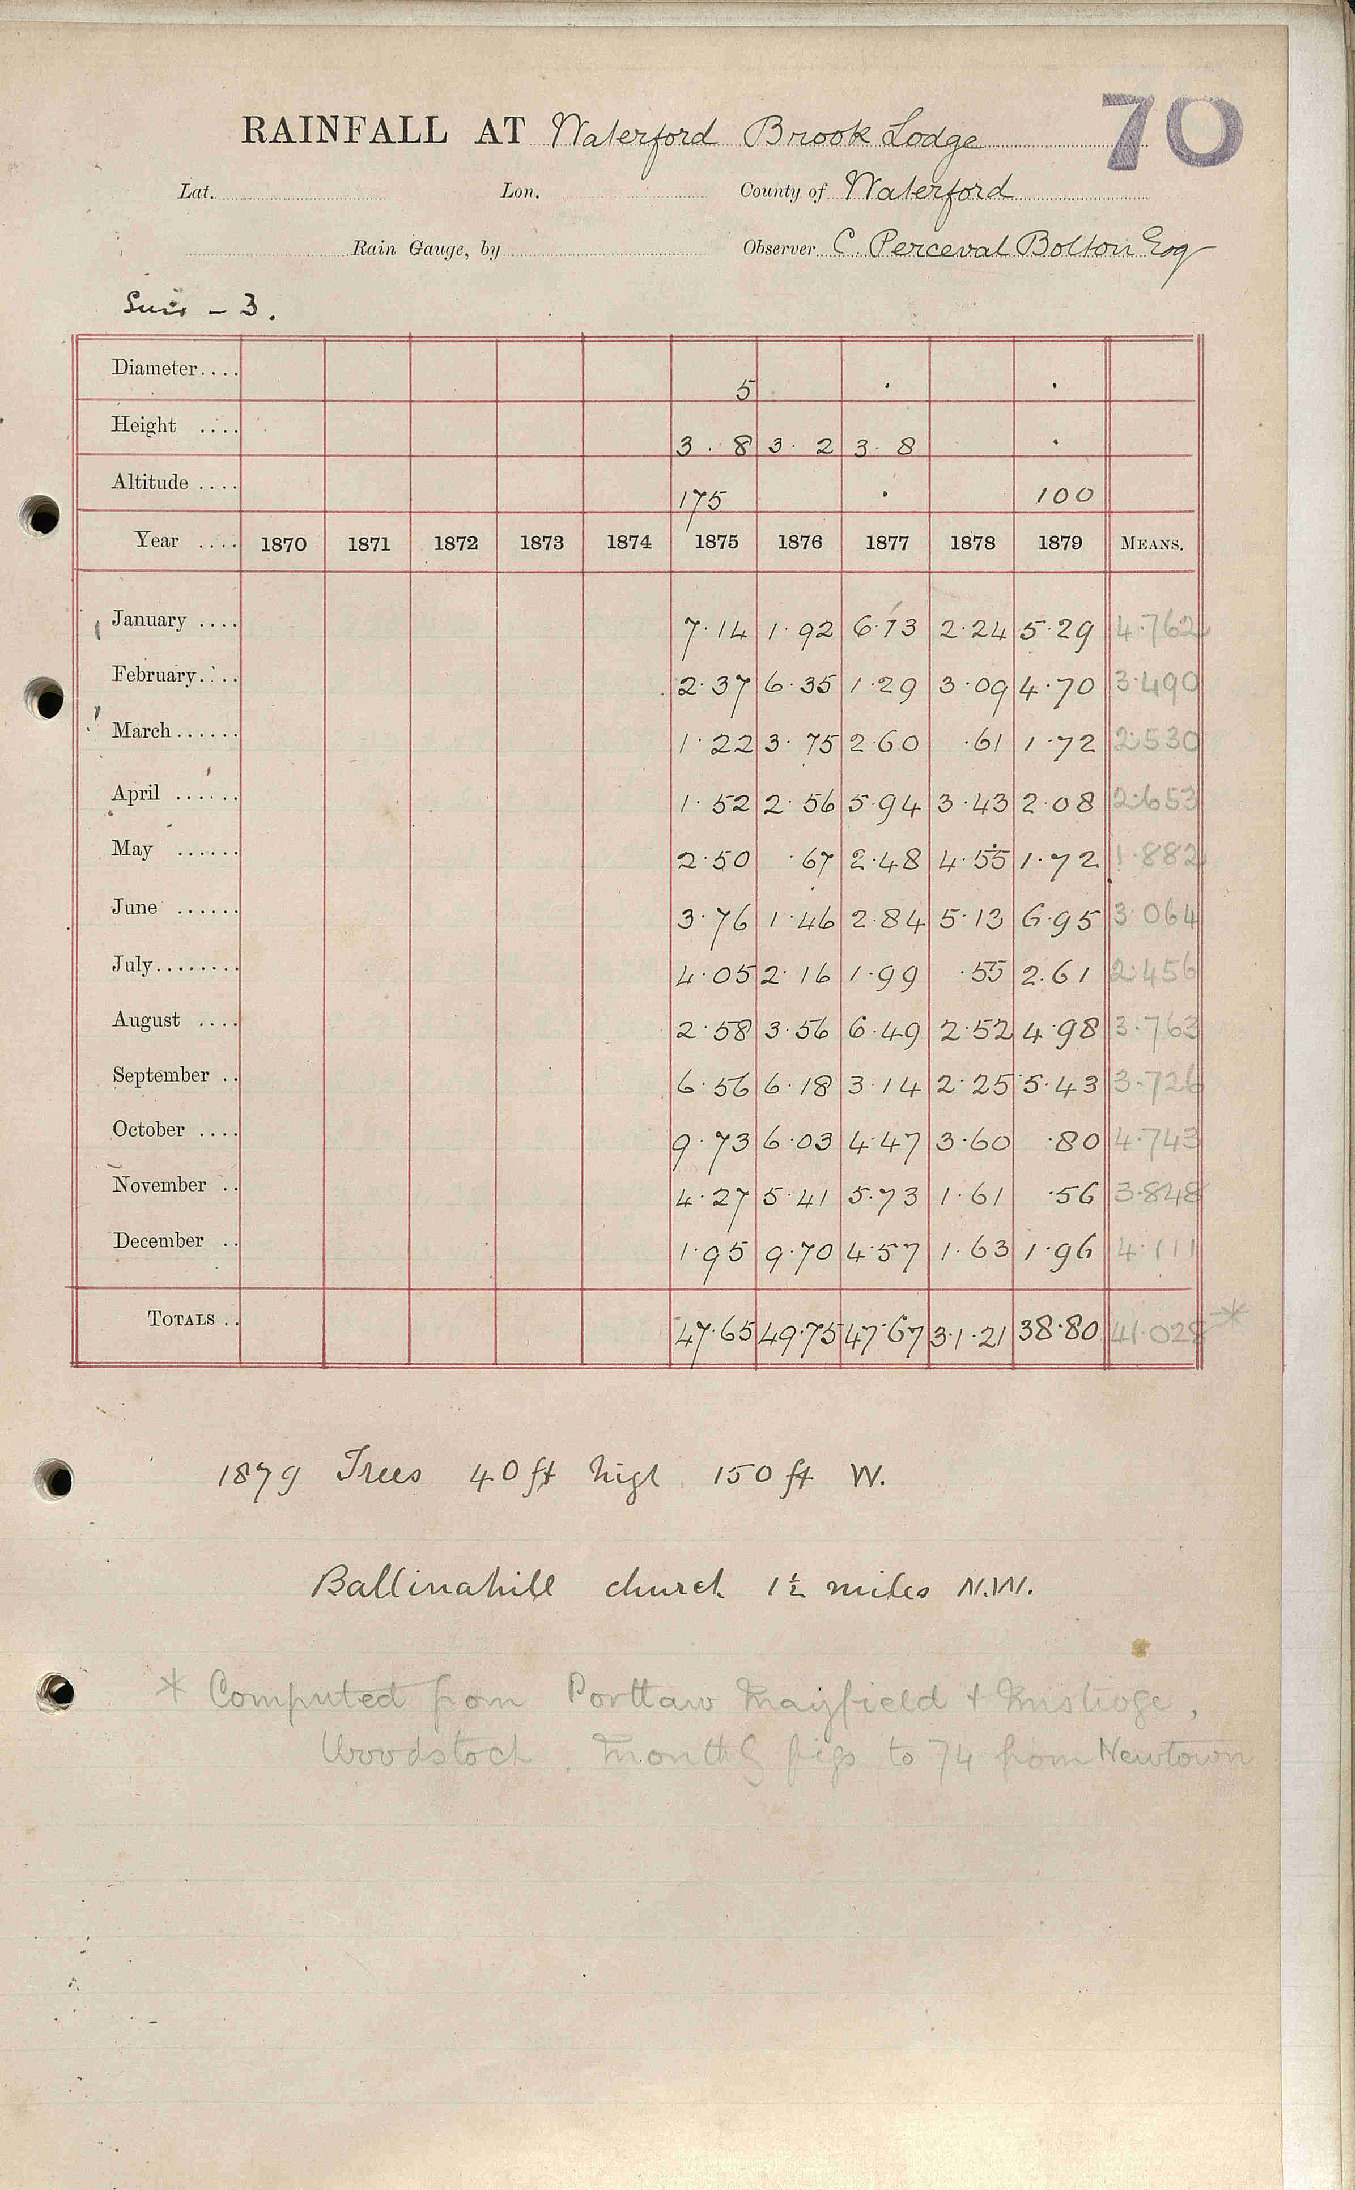 70
RAINFALL AT Waterford Brook Lodge
Lat. Lon. County of Waterford
Rain Gauge, by Observer C. Perceval Bolton Esq
Suir - 3.
Diameter.... 5 . .
Height .... 3 . 8 3 . 2 3 . 8 .
Altitude .... 175 . 100
Year .... 1870 1871 1872 1873 1874 1875 1876 1877 1878 1879 MEANS.
January .... 7.14 1.92 6.13 2.24 5.29 4.762
February.... 2.37 6.35 1.29 3.09 4.70 3.490
March...... 1.22 3.75 2.60 .61 1.72 2.530
April ...... 1.52 2.56 5.94 3.43 2.08 2.653
May ...... 2.50 .67 2.48 4.55 1.72 1.882
June ...... 3.76 1.46 2.84 5.13 6.95 3.064
July........ 4.05 2.16 1.99 .55 2.61 2.456
August .... 2.58 3.56 6.49 2.52 4.98 3.763
September .. 6.56 6.18 3.14 2.25 5.43 3.726
October .... 9.73 6.03 4.47 3.60 .80 4.743
November .. 4.27 5.41 5.73 1.61 .56 3.848
December .. 1.95 9.70 4.57 1.63 1.96 4.111
TOTALS .. 47.65 49.75 47.67 31.21 38.80 41.028 *
1879 Trees 40 ft high 150 ft W.
Ballinahill church 1½ miles N.W.
* Computed from Portlaw Mayfield + Inistioge,
Woodstock. Monthly figs to 74 from Newtown